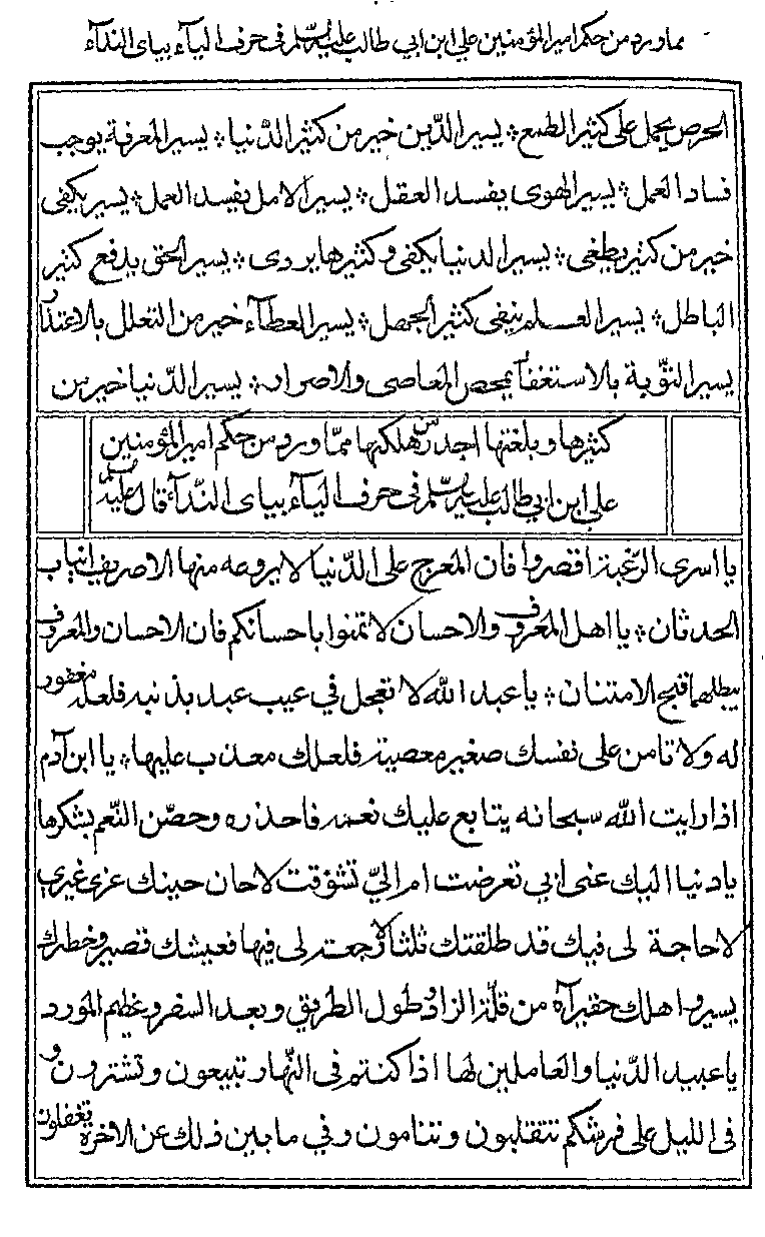 مما ورد من حكم امير المؤمنين علي ابن ابي طالب عليه السلم في حرف اليآء بياى الندآء
الحرص يحمل على كثير الطمع ∴ يسير الدّين خير من كثير الدّنيا ∴ يسير المعرفة يوجب
فساد العمل ∴ يسير الهوى يفسد العقل ∴ يسير الامل يفسد العمل ∴ يسير يكفى
خير من كثير يطغى ∴ يسير الدنيا يكفى وكثيرها يردى ∴ يسير الحق يدفع كثير
الباطل ∴ يسير العلم ينفى كثير الجهل ∴ يسير العطآء خير من التعلل بالاعتذار
يسير التّوبة بالاستغفار يمحص المعاصى والاصرار ∴ يسير الدّنيا خير من
كثيرها وبلغتها اجدر من هلكتها ممّا ورد من حكم امير المؤمنين
على ابن ابي طالب عليه السلم فى حرف اليآء بياى النّدآء قال عليه السلم
يا اسرى الرّغبة اقصروا فان المعرج على الدّنيا لا يروعه منها الا صريف انياب
الحدثان ∴ يا اهل المعروف والاحسان لا تمنوا باحسانكم فان الاحسان والمعروف
يبطلهما قبح الامتنان ∴ يا عبد الله لا تعجل في عيب عبد بذنبه فلعله مغفور
له ولا تامن على نفسك صغير معصية فلعلك معذب عليها ∴ يا ابن آدم
اذا رايت الله سبحانه يتابع عليك نعمه فاحذره وحصّن النّعم بشكرها
يا دنيا اليك عنى ابي تعرضت ام اليّ تشوّقت لا حان حينك غرى غيري
لا حاجة لى فيك قد طلقتك ثلثا لا رجعة لى فيها فعيشك قصير وخطرك
يسير واملك حقير آه من قلّة الزاد وطول الطريق وبعد السفر وعظيم المورد
يا عبيد الدّنيا والعاملين لها اذا كنتم فى النّهار تبيعون وتشترون و
فى الليل على فرشكم تتقلبون وتنامون وفي ما بين ذلك عن الاخرة تغفلون